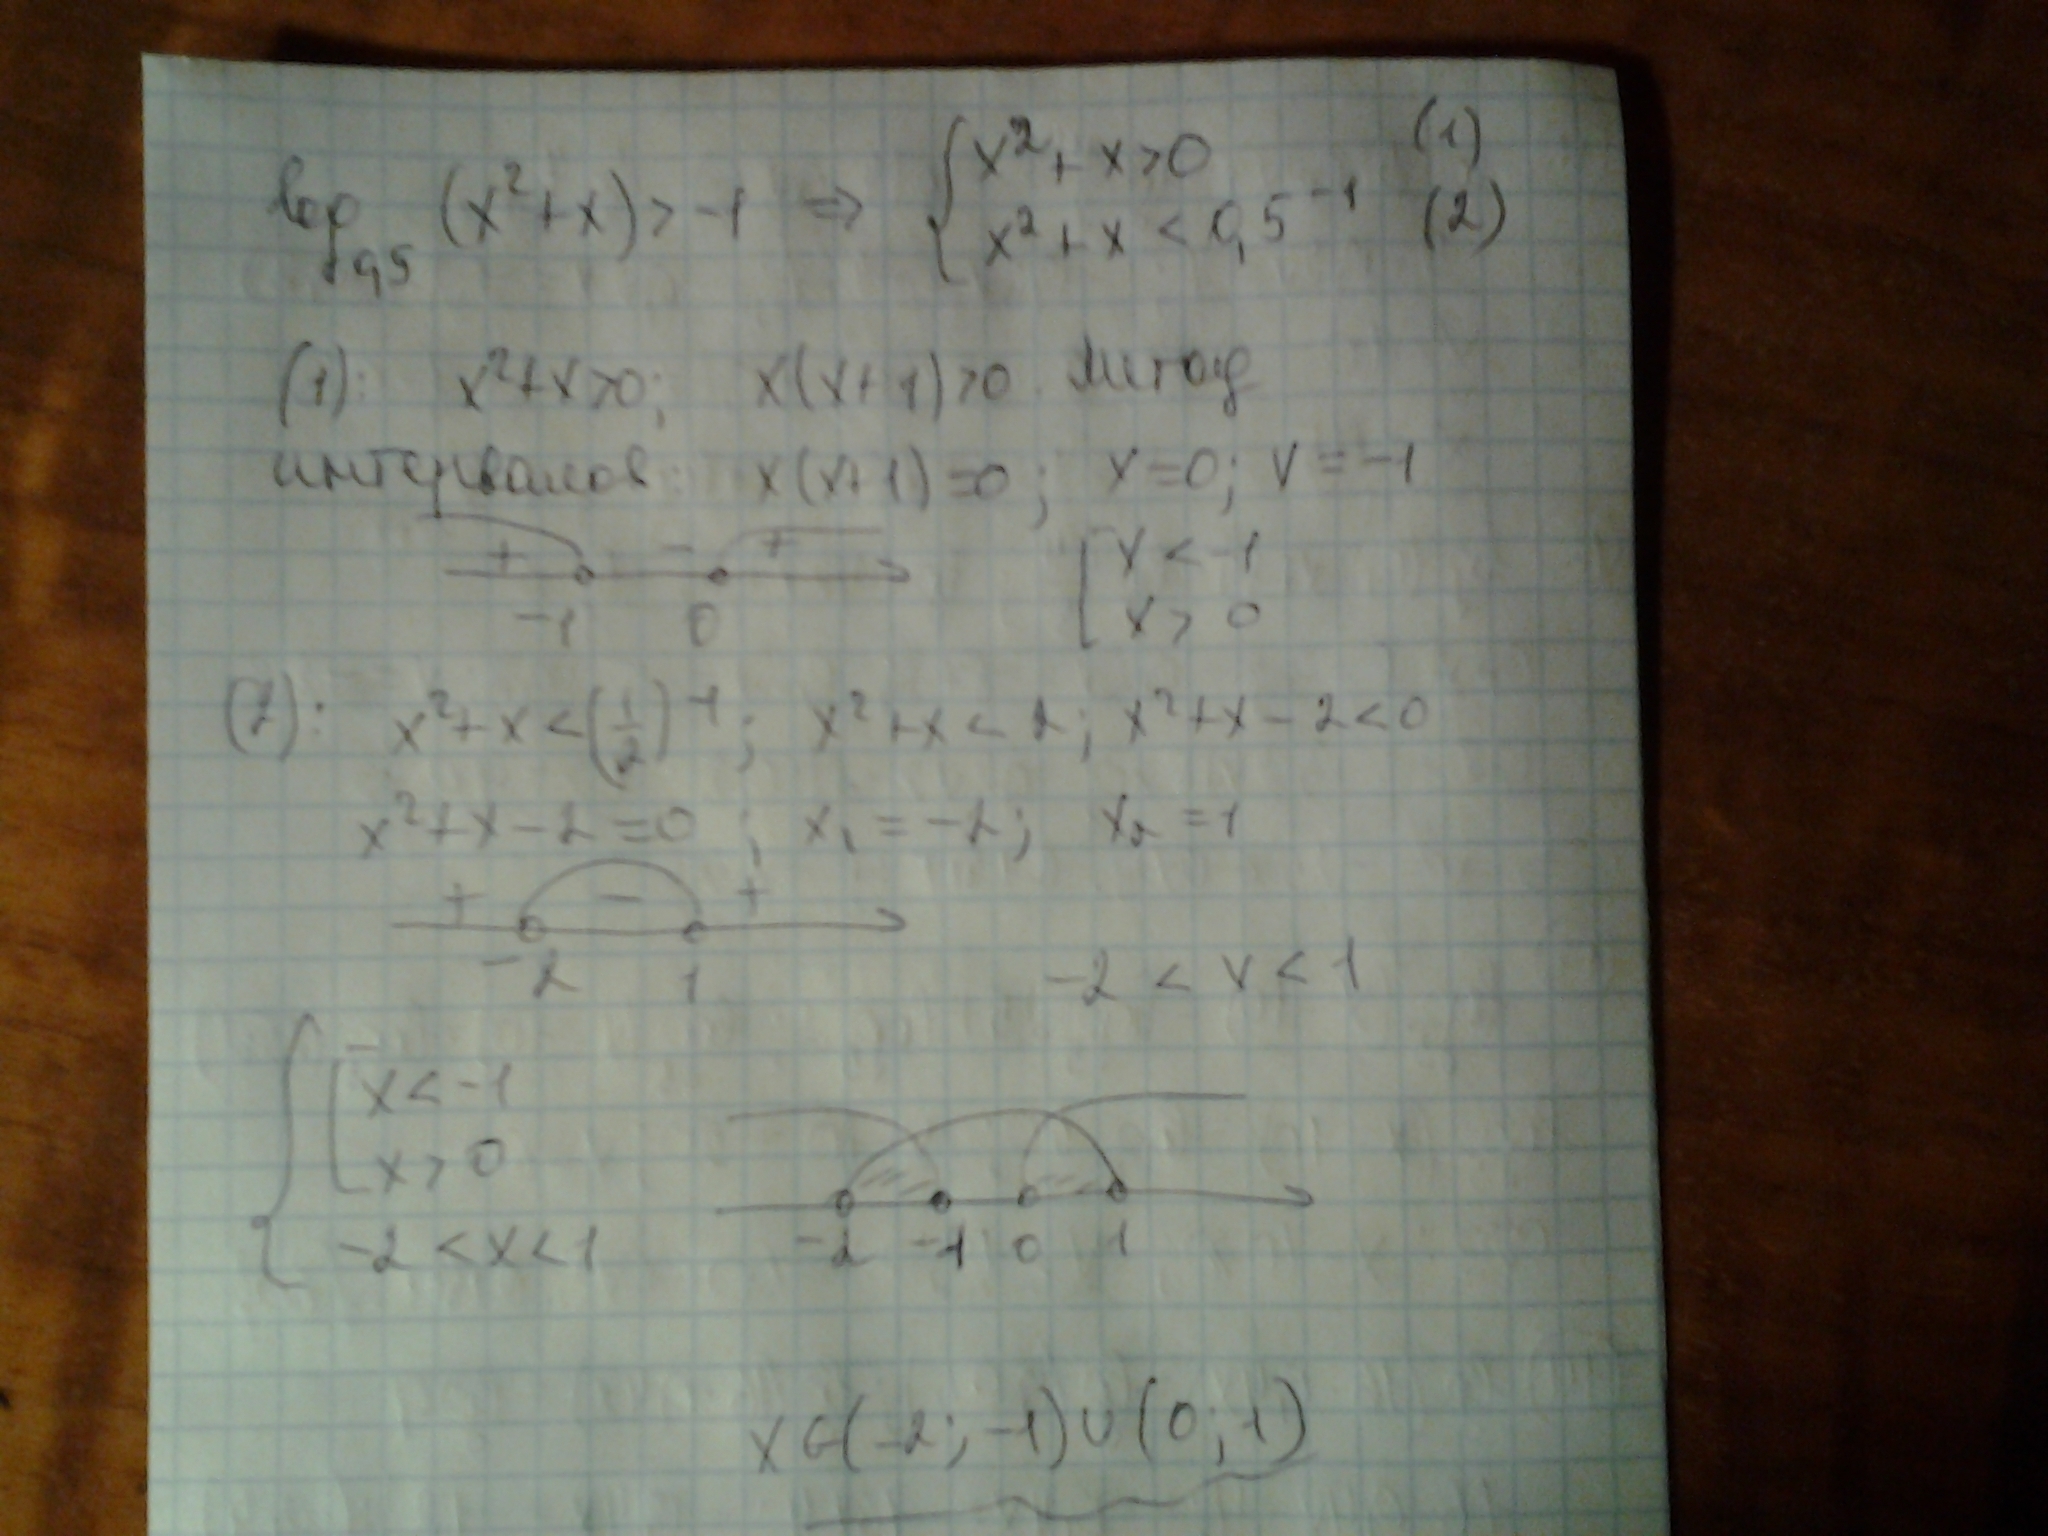 log₀,₅ (x² + x) > -1 ⇒ { x² + x > 0 (1)
x² + x < 0,5⁻¹ (2)
(1): x² + x > 0; x(x+1) > 0. Метод
интервалов: x(x+1) = 0; x = 0; x = -1
+ - +
-1 0
[ x < -1
x > 0
(2): x² + x < (1/2)⁻¹; x² + x < 2; x² + x - 2 < 0
x² + x - 2 = 0; x₁ = -2; x₂ = 1
+ - +
-2 1
-2 < x < 1
{ [ x < -1
x > 0
-2 < x < 1
-2 -1 0 1
x ∈ (-2; -1) ∪ (0; 1)